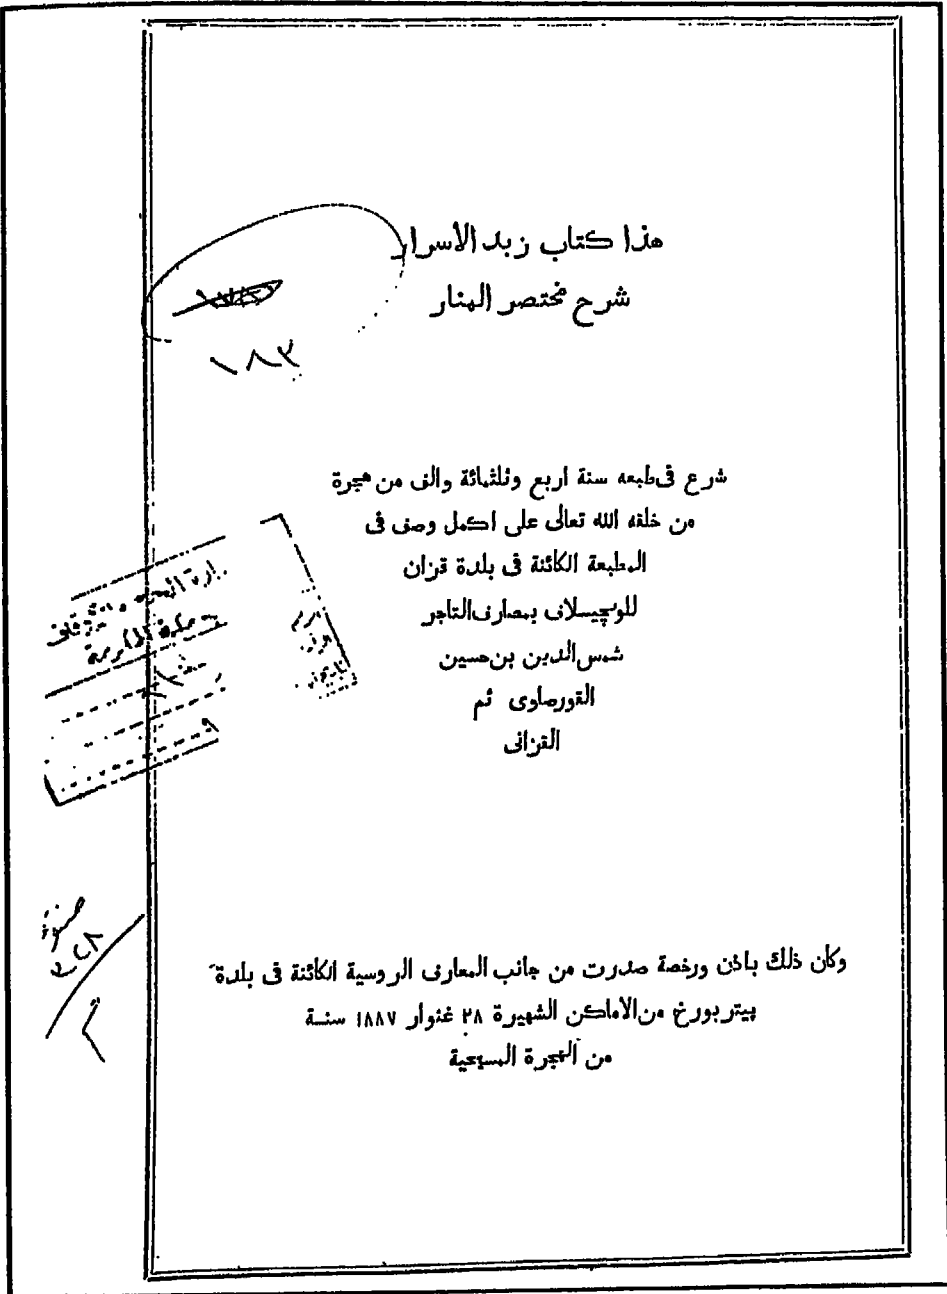 هذا كتاب زبد الاسرار
شرح مختصر المنار
١٨٣
شرع فى طبعه سنة اربع وثلثمائة والف من هجرة
من خلقه الله تعالى على اكمل وصف فى
المطبعة الكائنة فى بلدة قزان
للوچيسلاف بمصارف التاجر
شمس الدين بن حسين
القورصاوى ثم
القزانى
مكة المكرمة
وكان ذلك باذن ورخصة صدرت من جانب المعارف الروسية الكائنة فى بلدة
پيتربورغ من الاماكن الشهيرة ٢٨ غنوار ١٨٨٧ سنة
من الهجرة المسيحية